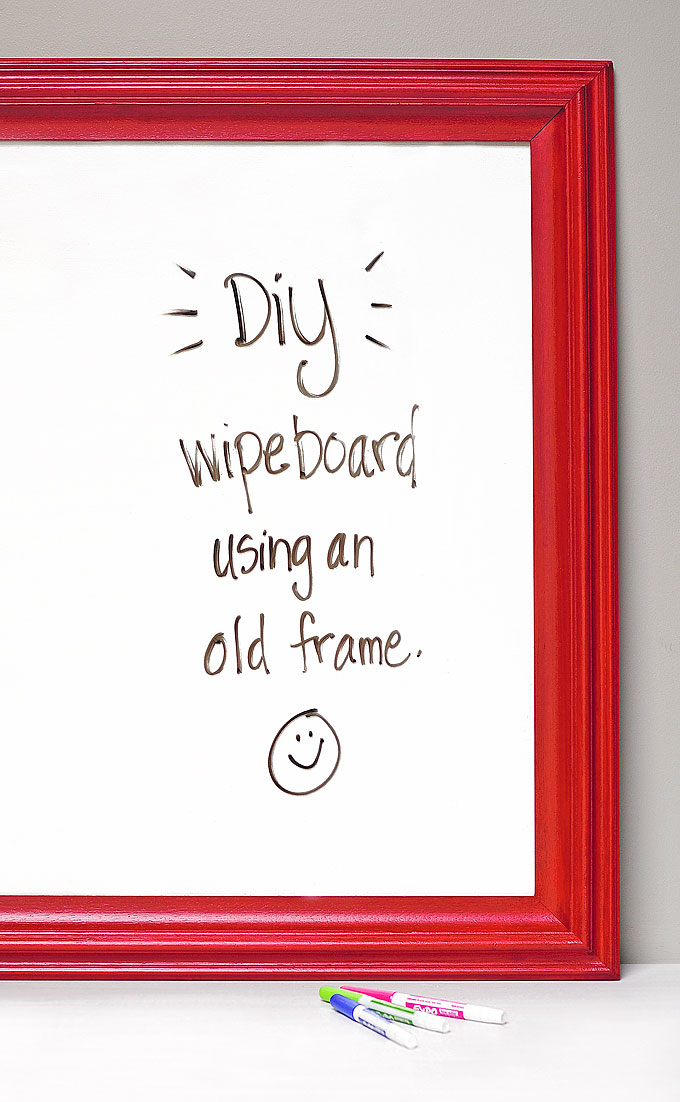 Diy
wipeboard
using an
old frame.
EXPO